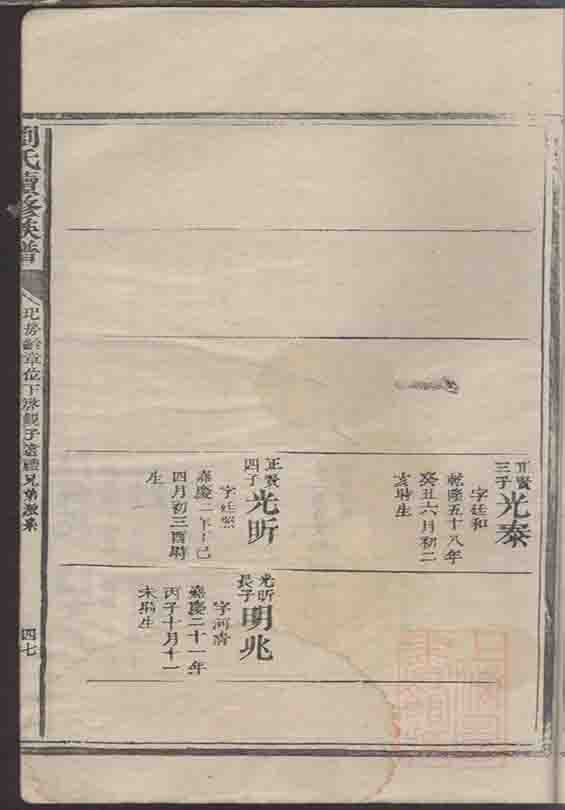 正賢
三子
光泰
字廷和
乾隆五十八年
癸丑六月初二
亥時生
正賢
四子
光昕
字廷照
嘉慶二年丁巳
四月初三酉時
生
光昕
長子
明兆
字河清
嘉慶二十一年
丙子十月十一
未時生
劉氏續修族譜
章位下
兄弟
四七